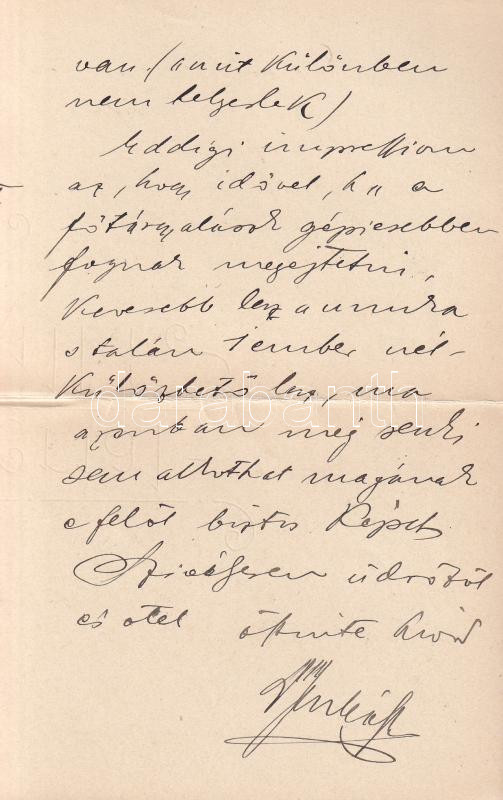 van. (amit különben
nem helyeslek)
Eddigi impressiom
az, hogy idővel, ha a
főtárgyalások gépiesebben
fognak megejtetni,
kevesebb lesz a munka
s talán 1 ember nél-
külözhető lesz, ma
azonban még senki
sem alkothat magának
e felől biztos képet.
Szivélyesen üdvözöl
és ölel őszinte hived
darabanth